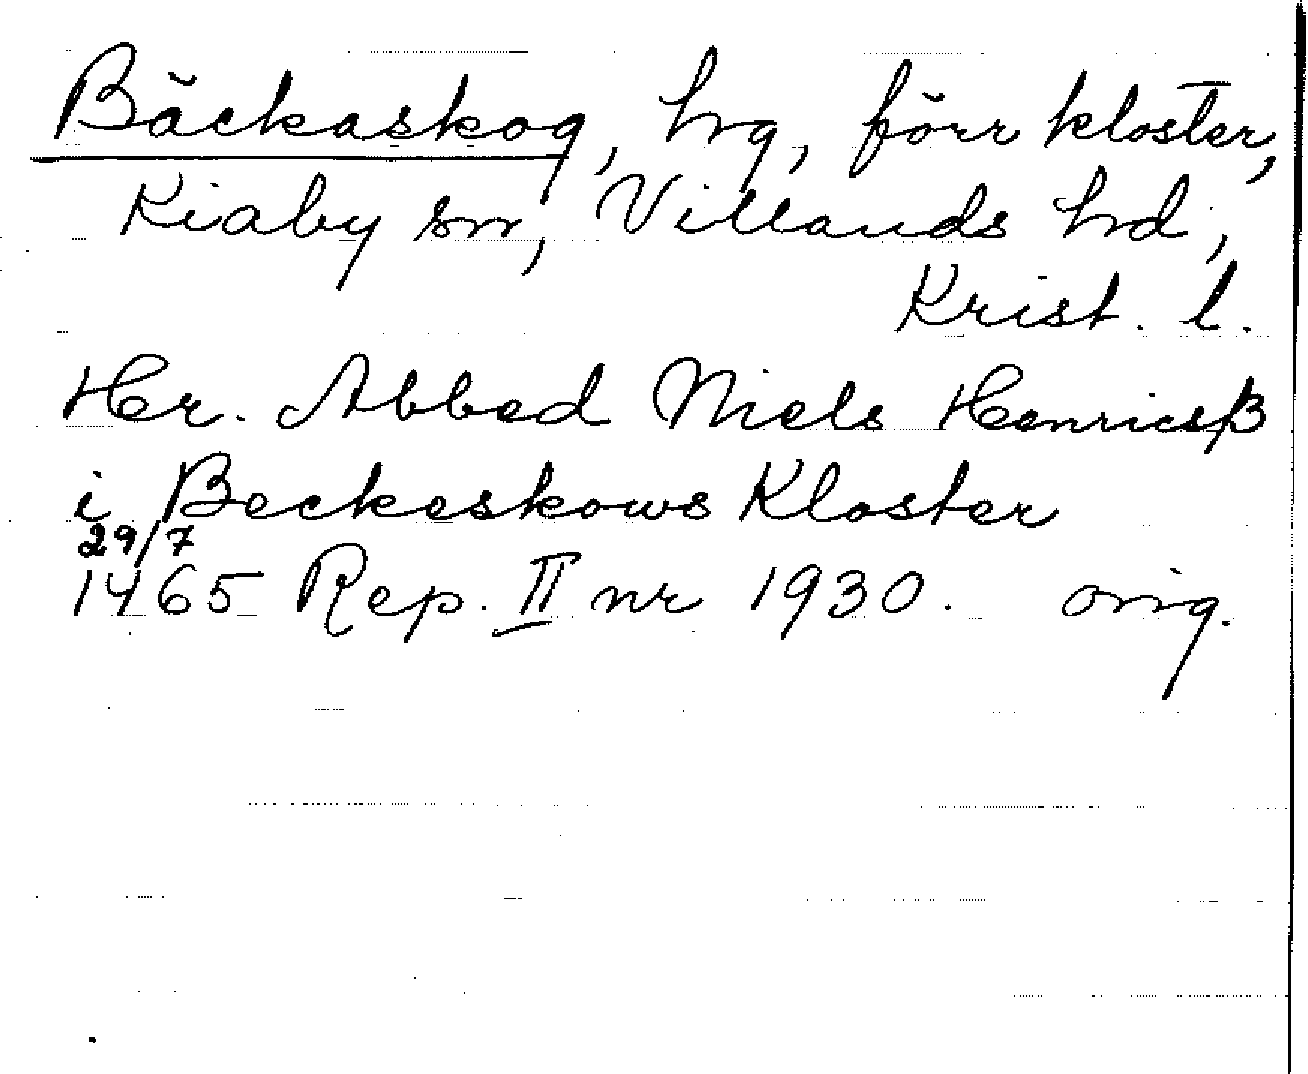 Bäckaskog, hrg, förr kloster,
Kiaby sn, Villands hrd,
Krist. l.
Her. Abbed Niels Henricsβ
i Beckeskows Kloster
29/7
1465 Rep. II nr 1930. orig.